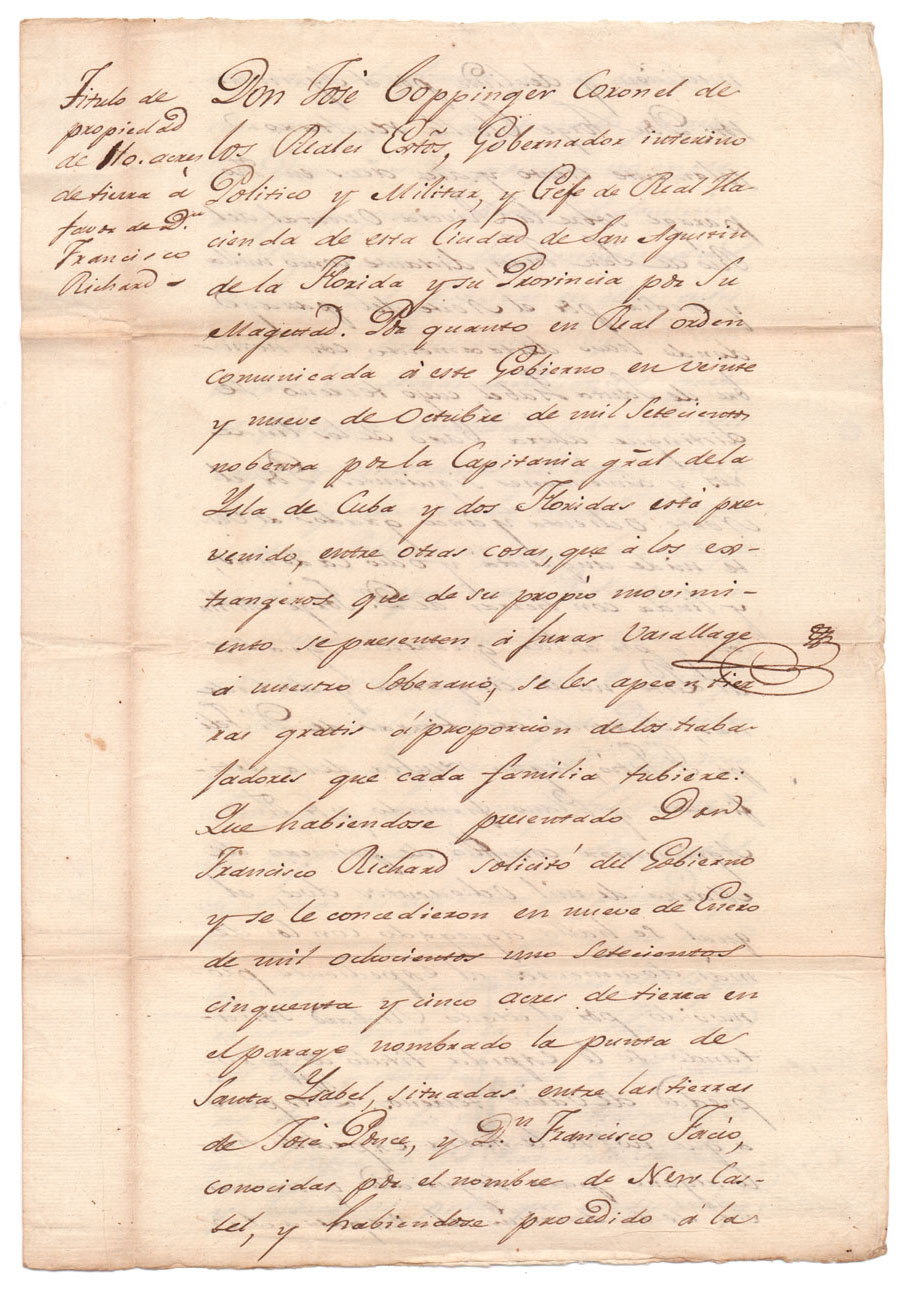 Titulo de
propiedad
de 110. acres
de tierra à
favor de D.n
Francisco
Richard -
Don José Coppinger Coronel de
los Reales Extõs, Gobernador interino
Politico y Militar, y Gefe de Real Ha-
cienda de esta Ciudad de San Agustin
de la Florida y su Provincia por Su
Magestad. Por quanto en Real orden
comunicada à este Gobierno en veinte
y nueve de Octubre de mil Setecientos
nobenta por la Capitania gr̃al de la
Ysla de Cuba y dos Floridas está pre-
venido, entre otras cosas, que à los ex-
trangeros que de su propio movimi-
ento se presenten à jurar Vasallage
à nuestro Soberano, se les apeen tier
ras gratis à proporcion de los traba-
jadores que cada familia tubiere:
Que habiendose presentado Don
Francisco Richard solicitó del Gobierno
y se le concedieron en nueve de Enero
de mil ochocientos uno Setecientos
cinquenta y cinco acres de tierra en
el parage nombrado la punta de
Santa Ysabel, situadas entre las tierras
de José Ponce, y D.n Francisco Facio,
conocidas por el nombre de New Cas-
tel, y habiendose procedido à la